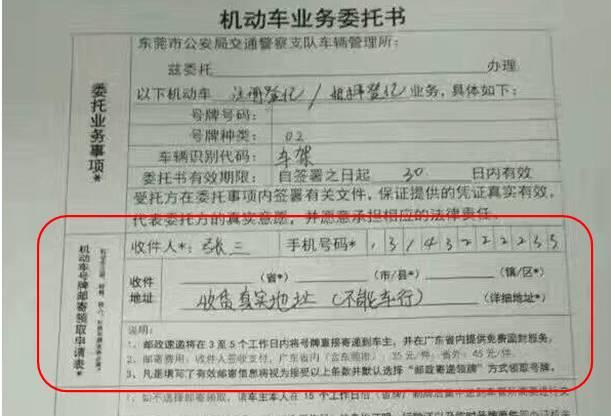 机动车业务委托书
委托业务事项*
东莞市公安局交通警察支队车辆管理所:
兹委托 办理
以下机动车 注册登记/抵押登记 业务,具体如下:
号牌号码:
号牌种类: 02
车辆识别代码: 车架
委托书有效期限: 自签署之日起 30 日内有效
受托方在委托事项内签署有关文件,保证提供的凭证真实有效,
代表委托方的真实意愿,并愿意承担相应的法律责任.
机动车号牌邮寄领取申请表*
收件人*: 张三 手机号码*
收件地址 (省*) (市/县*) (镇/区*)
收货真实地址(不能车行) (详细地址*)
说明:
1、邮政速递将在3至5个工作日内将号牌直接寄递到车主,并在广东省内提供免费返封服务.
2、邮寄费用:收件人签收支付,广东省内(含东莞市):35元/件;省外:45元/件.
3、凡是填写了有效邮寄信息将视为接受以上条款并默认选择“邮政寄递领牌”方式领取号牌.
1、如不选择邮寄领取,请车主本人在15个工作日后